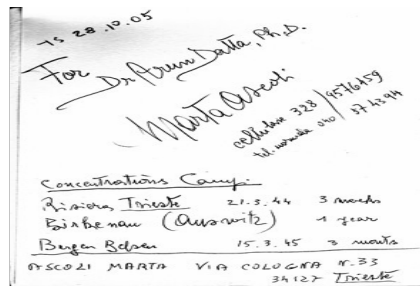 TS 28.10.05
For
Dr Arun Datta, Ph.D.
Marta Ascoli
cellulare 328/9576459
tel. normale 040/374394
Concentrations Camp:
Risiera Trieste 21.3.44 3 weeks
Birkenau (Auswitz) 1 year
Bergen Belsen 15.3.45 3 months
ASCOLI MARTA VIA COLOGNA N.33
34127 Trieste